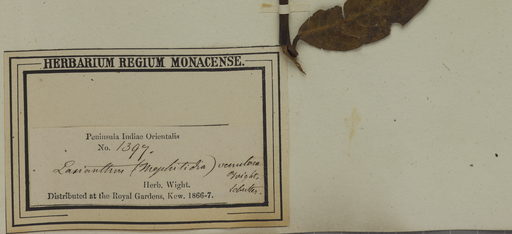 HERBARIUM REGIUM MONACENSE.
Peninsula Indiae Orientalis
No. 1397.
Lasianthus (Mephitidia) venulosa
Wight.
Herb. Wight.
Distributed at the Royal Gardens, Kew. 1866-7.